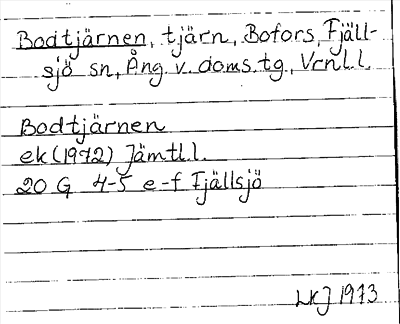 Bodtjärnen, tjärn, Bofors, Fjäll-
sjö sn, Ång. v. doms.tg., Vrnl l
Bodtjärnen
ek (1972) Jämtl.l.
20 G 4-5 e-f Fjällsjö
LKJ 1973